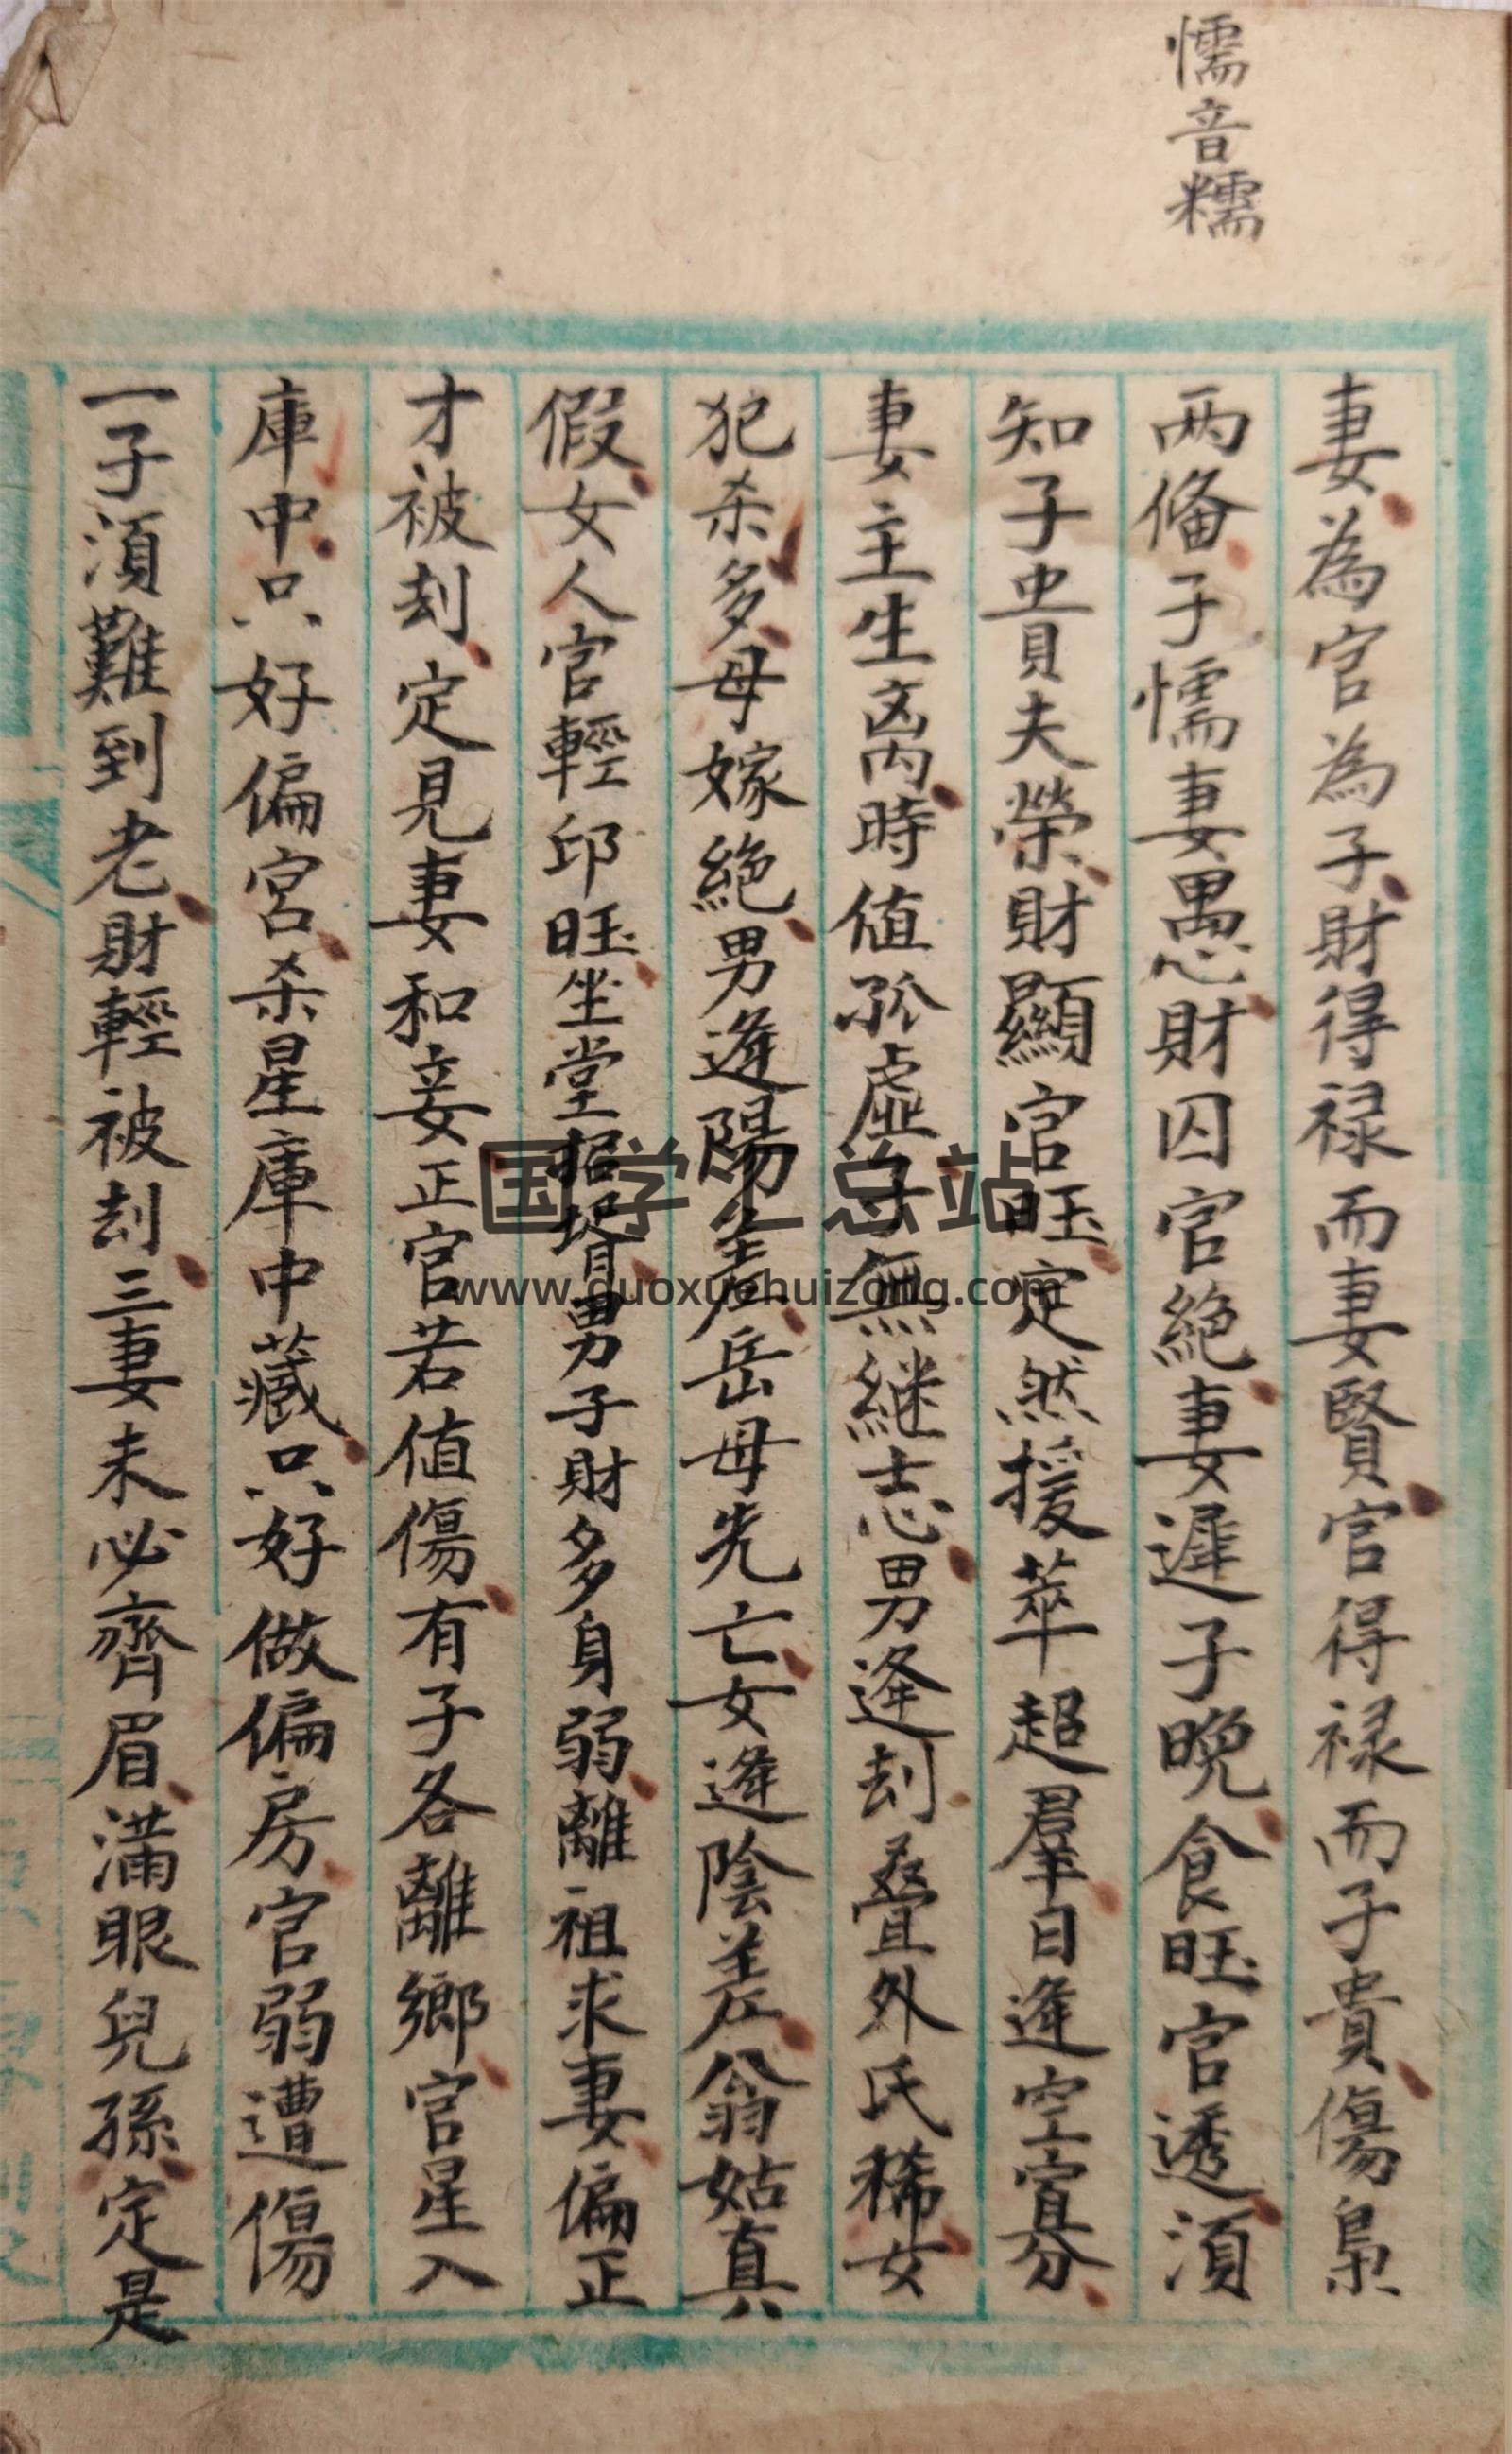 懦音糯
妻為官為子財得禄而妻賢官得禄而子貴傷梟
两俻子懦妻愚財囚官絶妻遲子晚食旺官透湏
知子贵夫榮財顯官旺定然援萃超羣日逢空寡
妻主生离時值孤虛子無継志男逢刦叠外氏稀女
犯杀多母嫁絶男逢陽差岳母先亡女逢陰差翁姑真
假女人官輕印旺坐堂招壻男子財多身弱離祖求妻偏正
才被刦定見妻和妾正官若值傷有子各離鄉官星入
庫中只好偏宮杀星庫中藏只好做偏房官弱遭傷
一子湏難到老財輕被刦三妻未必齊眉滿眼兒孫定是
国学汇总站
www.guoxuehuizong.com